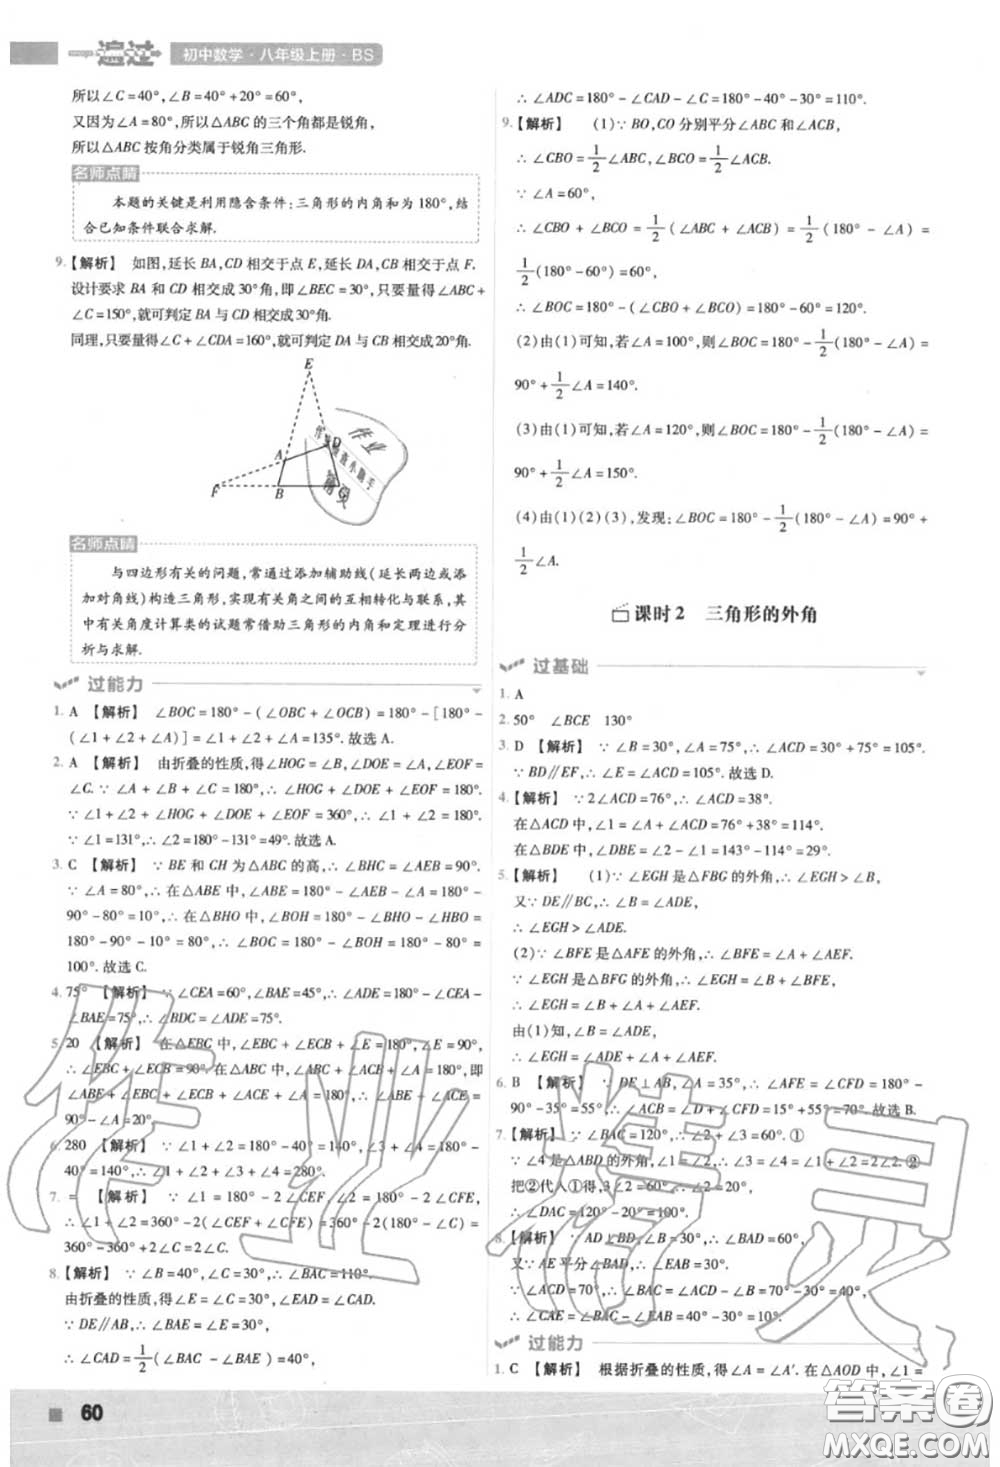 一遍过 初中数学·八年级上册·BS
所以∠C=40°,∠B=40°+20°=60°,
又因为∠A=80°,所以△ABC的三个角都是锐角,
所以△ABC按角分类属于锐角三角形.
名师点睛
本题的关键是利用隐含条件:三角形的内角和为180°,结
合已知条件联合求解.
9.【解析】 如图,延长BA,CD相交于点E,延长DA,CB相交于点F.
设计要求BA和CD相交成30°角,即∠BEC=30°,只要量得∠ABC+
∠C=150°,就可判定BA与CD相交成30°角.
同理,只要量得∠C+∠CDA=160°,就可判定DA与CB相交成20°角.
E
A
D
F
B
名师点睛
与四边形有关的问题,常通过添加辅助线(延长两边或添
加对角线)构造三角形,实现有关角之间的互相转化与联系,其
中有关角度计算类的试题常借助三角形的内角和定理进行分
析与求解.
过能力
1. A 【解析】 ∠BOC=180°-(∠OBC+∠OCB)=180°-[180°-
(∠1+∠2+∠A)]=∠1+∠2+∠A=135°.故选A.
2. A 【解析】 由折叠的性质,得∠HOG=∠B,∠DOE=∠A,∠EOF=
∠C.∵∠A+∠B+∠C=180°,∴∠HOG+∠DOE+∠EOF=180°.
∵∠1+∠2+∠HOG+∠DOE+∠EOF=360°,∴∠1+∠2=180°.
∵∠1=131°,∴∠2=180°-131°=49°.故选A.
3. C 【解析】 ∵BE和CH为△ABC的高,∴∠BHC=∠AEB=90°.
∵∠A=80°,∴在△ABE中,∠ABE=180°-∠AEB-∠A=180°-
90°-80°=10°,∴在△BHO中,∠BOH=180°-∠BHO-∠HBO=
180°-90°-10°=80°,∴∠BOC=180°-∠BOH=180°-80°=
100°.故选C.
4. 75° 【解析】 ∵∠CEA=60°,∠BAE=45°,∴∠ADE=180°-∠CEA-
∠BAE=75°,∴∠BDC=∠ADE=75°.
5. 20 【解析】 在△EBC中,∠EBC+∠ECB+∠E=180°,∠E=90°,
∴∠EBC+∠ECB=90°.在△ABC中,∠A+∠ABC+∠ACB=180°,即
∠ABE+∠EBC+∠ECB+∠ACE+∠A=180°,∴∠ABE+∠ACE=
90°-∠A=20°.
6. 280 【解析】 ∵∠1+∠2=180°-40°=140°,∠3+∠4=180°-
40°=140°,∴∠1+∠2+∠3+∠4=280°.
7. = 【解析】 ∵∠1=180°-2∠CEF,∠2=180°-2∠CFE,
∴∠1+∠2=360°-2(∠CEF+∠CFE)=360°-2(180°-∠C)=
360°-360°+2∠C=2∠C.
8.【解析】 ∵∠B=40°,∠C=30°,∴∠BAC=110°.
由折叠的性质,得∠E=∠C=30°,∠EAD=∠CAD.
∵DE∥AB,∴∠BAE=∠E=30°,
∴∠CAD=1/2(∠BAC-∠BAE)=40°,
∴∠ADC=180°-∠CAD-∠C=180°-40°-30°=110°.
9.【解析】 (1)∵BO,CO分别平分∠ABC和∠ACB,
∴∠CBO=1/2∠ABC,∠BCO=1/2∠ACB.
∵∠A=60°,
∴∠CBO+∠BCO=1/2(∠ABC+∠ACB)=1/2(180°-∠A)=
1/2(180°-60°)=60°,
∴∠BOC=180°-(∠CBO+∠BCO)=180°-60°=120°.
(2)由(1)可知,若∠A=100°,则∠BOC=180°-1/2(180°-∠A)=
90°+1/2∠A=140°.
(3)由(1)可知,若∠A=120°,则∠BOC=180°-1/2(180°-∠A)=90°+
1/2∠A=150°.
(4)由(1)(2)(3),发现:∠BOC=180°-1/2(180°-∠A)=90°+
1/2∠A.
课时2 三角形的外角
过基础
1. A
2. 50° ∠BCE 130°
3. D 【解析】 ∵∠B=30°,∠A=75°,∴∠ACD=30°+75°=105°.
∵BD∥EF,∴∠E=∠ACD=105°.故选D.
4.【解析】 ∵2∠ACD=76°,∴∠ACD=38°.
在△ACD中,∠1=∠A+∠ACD=76°+38°=114°.
在△BDE中,∠DBE=∠2-∠1=143°-114°=29°.
5.【解析】 (1)∵∠EGH是△FBG的外角,∴∠EGH>∠B,
又∵DE∥BC,∴∠B=∠ADE,
∴∠EGH>∠ADE.
(2)∵∠BFE是△AFE的外角,∴∠BFE=∠A+∠AEF,
∵∠EGH是△BFG的外角,∴∠EGH=∠B+∠BFE,
∴∠EGH=∠B+∠A+∠AEF.
由(1)知,∠B=∠ADE,
∴∠EGH=∠ADE+∠A+∠AEF.
6. B 【解析】 ∵DE⊥AB,∠A=35°,∴∠AFE=∠CFD=180°-
90°-35°=55°,∴∠ACB=∠D+∠CFD=15°+55°=70°.故选B.
7.【解析】 ∵∠BAC=120°,∴∠2+∠3=60°.①
∵∠4是△ABD的外角,∴∠4=∠3=∠1+∠2=2∠2.②
把②代入①得,3∠2=60°,∴∠2=20°,
∴∠DAC=120°-20°=100°.
8.【解析】 ∵AD⊥BD,∠B=30°,∴∠BAD=60°,
又∵AE平分∠BAD,∴∠EAB=30°.
∵∠ACD=70°,∴∠BAC=∠ACD-∠B=70°-30°=40°,
∴∠CAE=∠BAC-∠EAB=40°-30°=10°.
过能力
1. C 【解析】 根据折叠的性质,得∠A=∠A'.在△AOD中,∠1=
60
作业精灵
答案圈
MXQE.COM